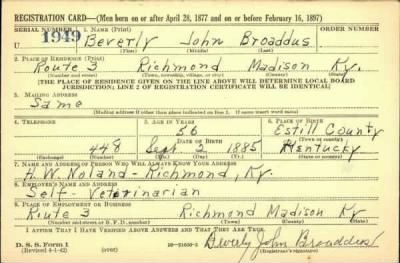 REGISTRATION CARD—(Men born on or after April 28, 1877 and on or before February 16, 1897)
SERIAL NUMBER 1. NAME (Print) ORDER NUMBER
U 1949 Beverly John Broaddus
(First) (Middle) (Last)
2. PLACE OF RESIDENCE (Print)
Route 3 Richmond Madison Ky.
(Number and street) (Town, township, village, or city) (County) (State)
[THE PLACE OF RESIDENCE GIVEN ON THE LINE ABOVE WILL DETERMINE LOCAL BOARD
JURISDICTION; LINE 2 OF REGISTRATION CERTIFICATE WILL BE IDENTICAL]
3. MAILING ADDRESS
Same
[Mailing address if other than place indicated on line 2. If same insert word same]
4. TELEPHONE 5. AGE IN YEARS 6. PLACE OF BIRTH
56 Estill County
DATE OF BIRTH (Town or county)
448 Sept 2 1885 Kentucky
(Exchange) (Number) (Mo.) (Day) (Yr.) (State or country)
7. NAME AND ADDRESS OF PERSON WHO WILL ALWAYS KNOW YOUR ADDRESS
H. W. Noland - Richmond, Ky.
8. EMPLOYER'S NAME AND ADDRESS
Self - Veterinarian
9. PLACE OF EMPLOYMENT OR BUSINESS
Route 3 Richmond Madison Ky
(Number and street or R. F. D. number) (Town) (County) (State)
I AFFIRM THAT I HAVE VERIFIED ABOVE ANSWERS AND THAT THEY ARE TRUE.
D. S. S. Form 1 Beverly John Broaddus
(Revised 4-1-42) (over) (Registrant's signature)